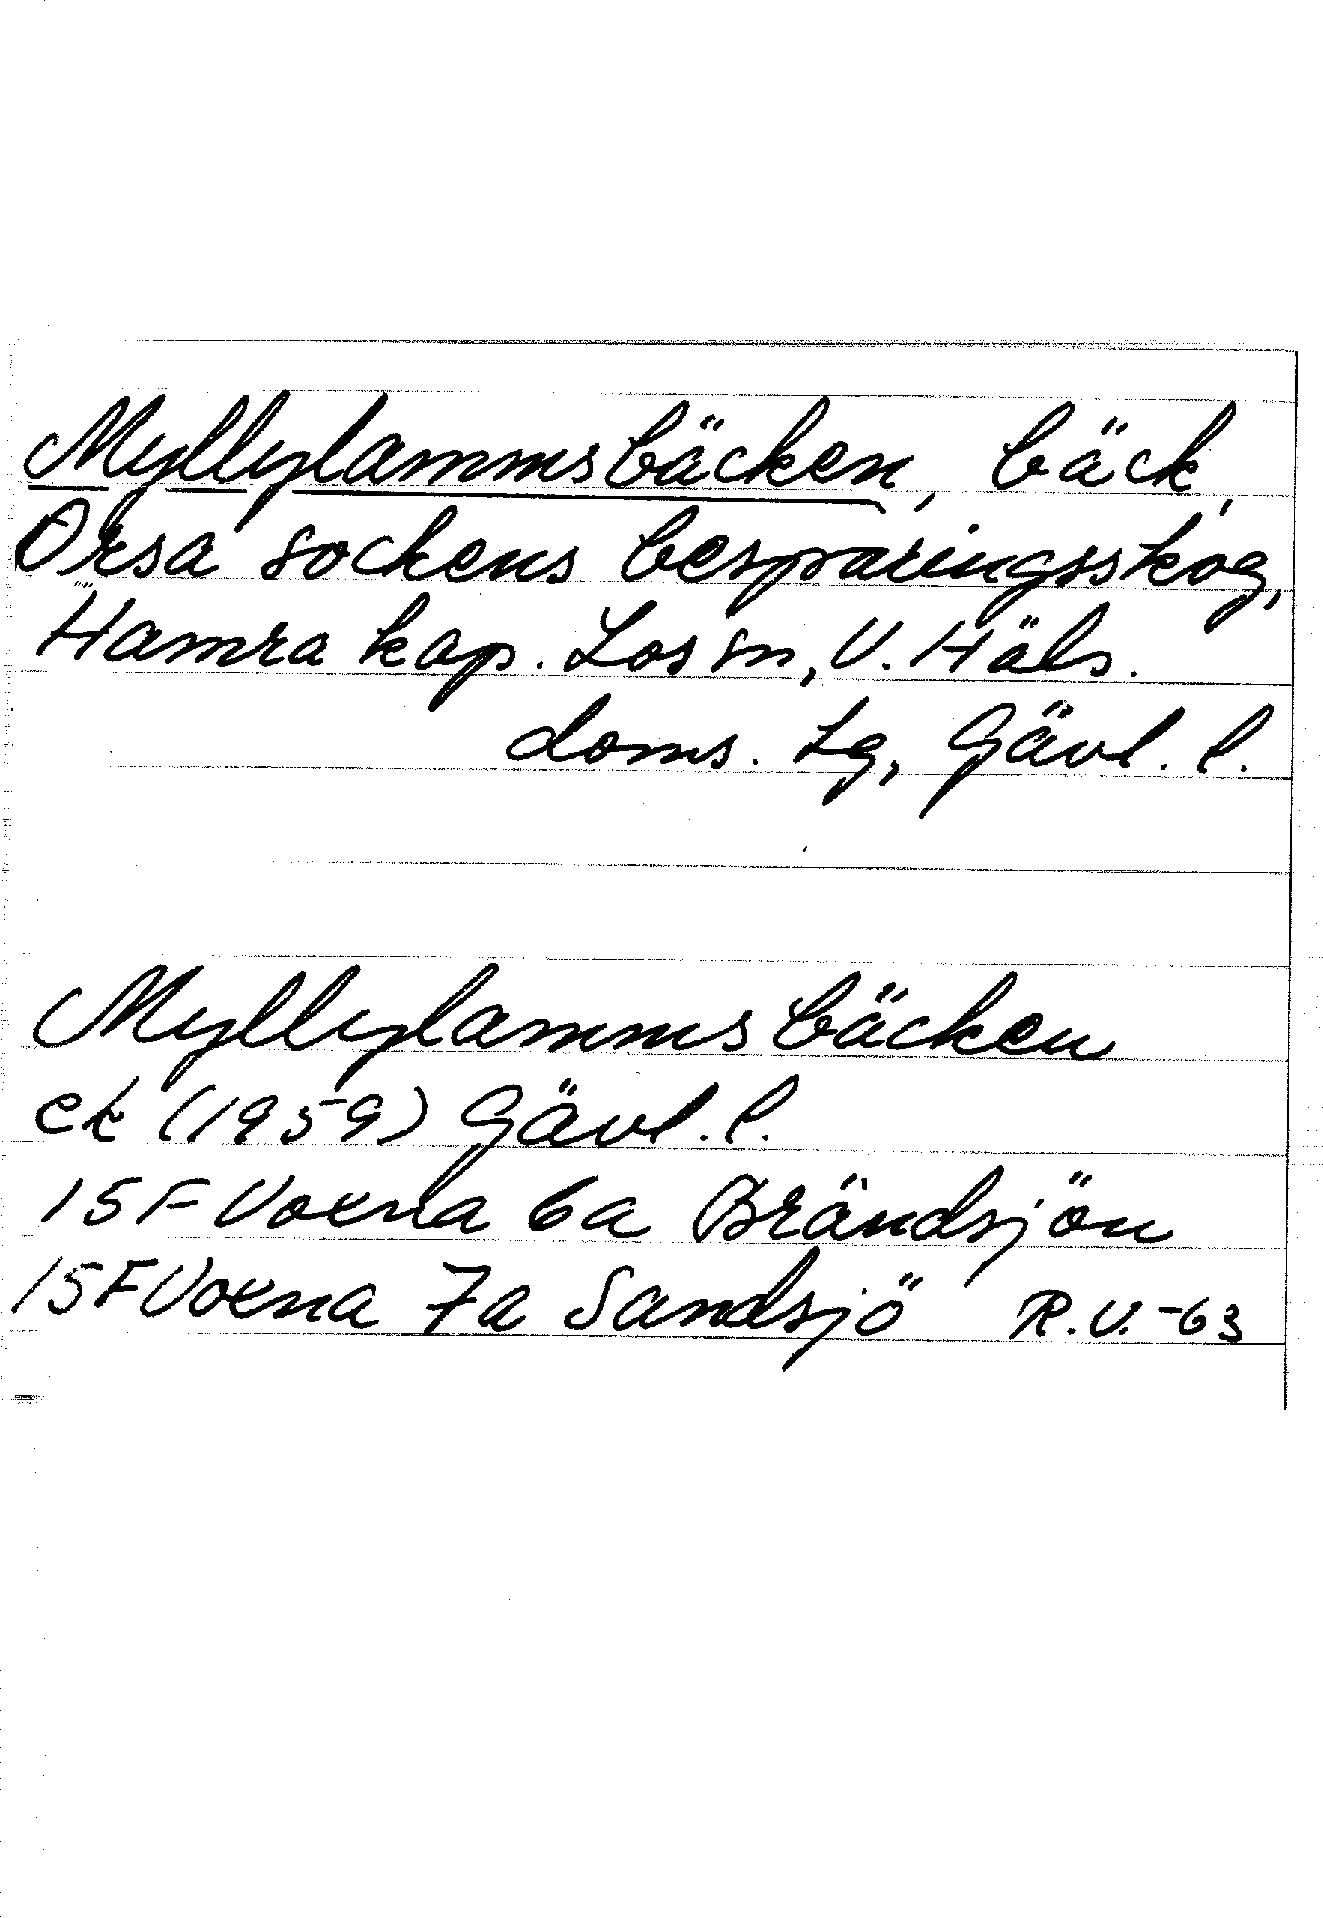 Myllylammsbäcken, bäck,
Orsa sockens besparingsskog,
Hamra kap. Los sn, V. Häls.
doms. lg, Gävl. l.
Myllylammsbäcken
ek (1959) Gävl. l.
15F Voxna 6a Brändsjön
15F Voxna 7a Sandsjö R.V.-63